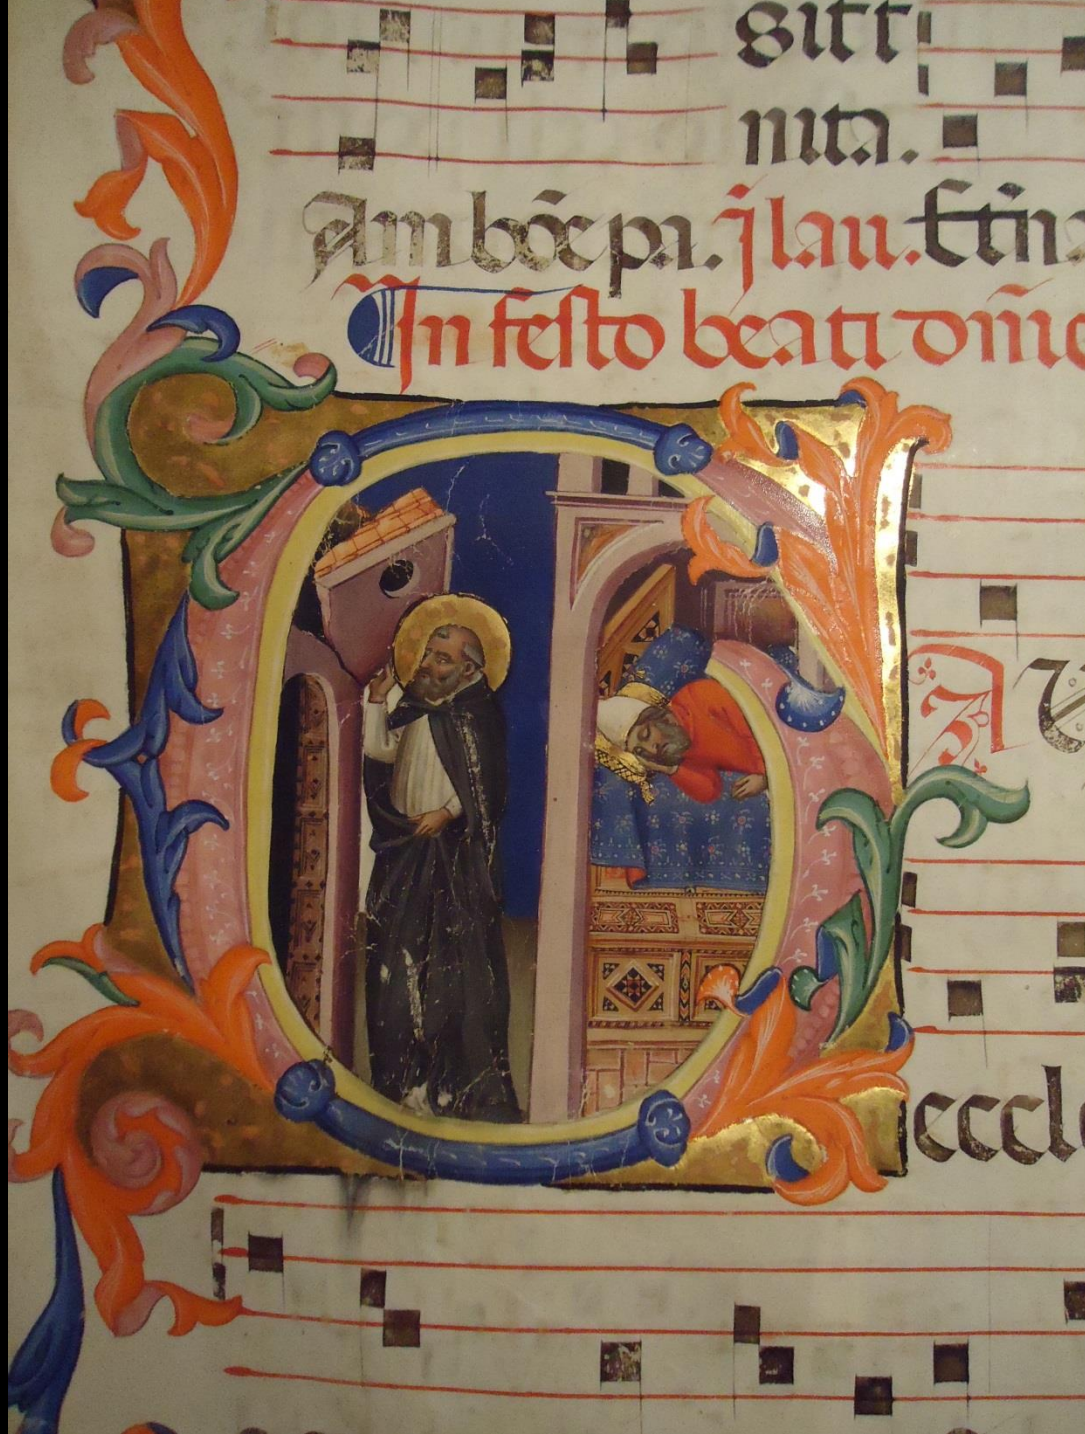 sitt
nita.
Ambōx pa. j lau. Et in
In festo beati dom̄ic
eccle